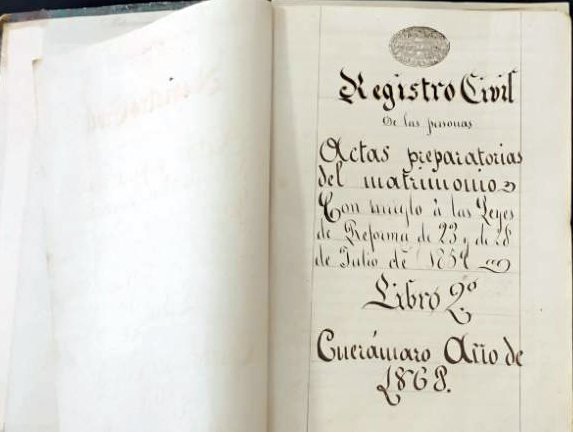 Registro Civil
De las personas
Actas preparatorias
del matrimonio
Con arreglo á las Leyes
de Reforma de 23 y de 28
de Julio de 1859
Libro 2º
Cuerámaro Año de
1868.